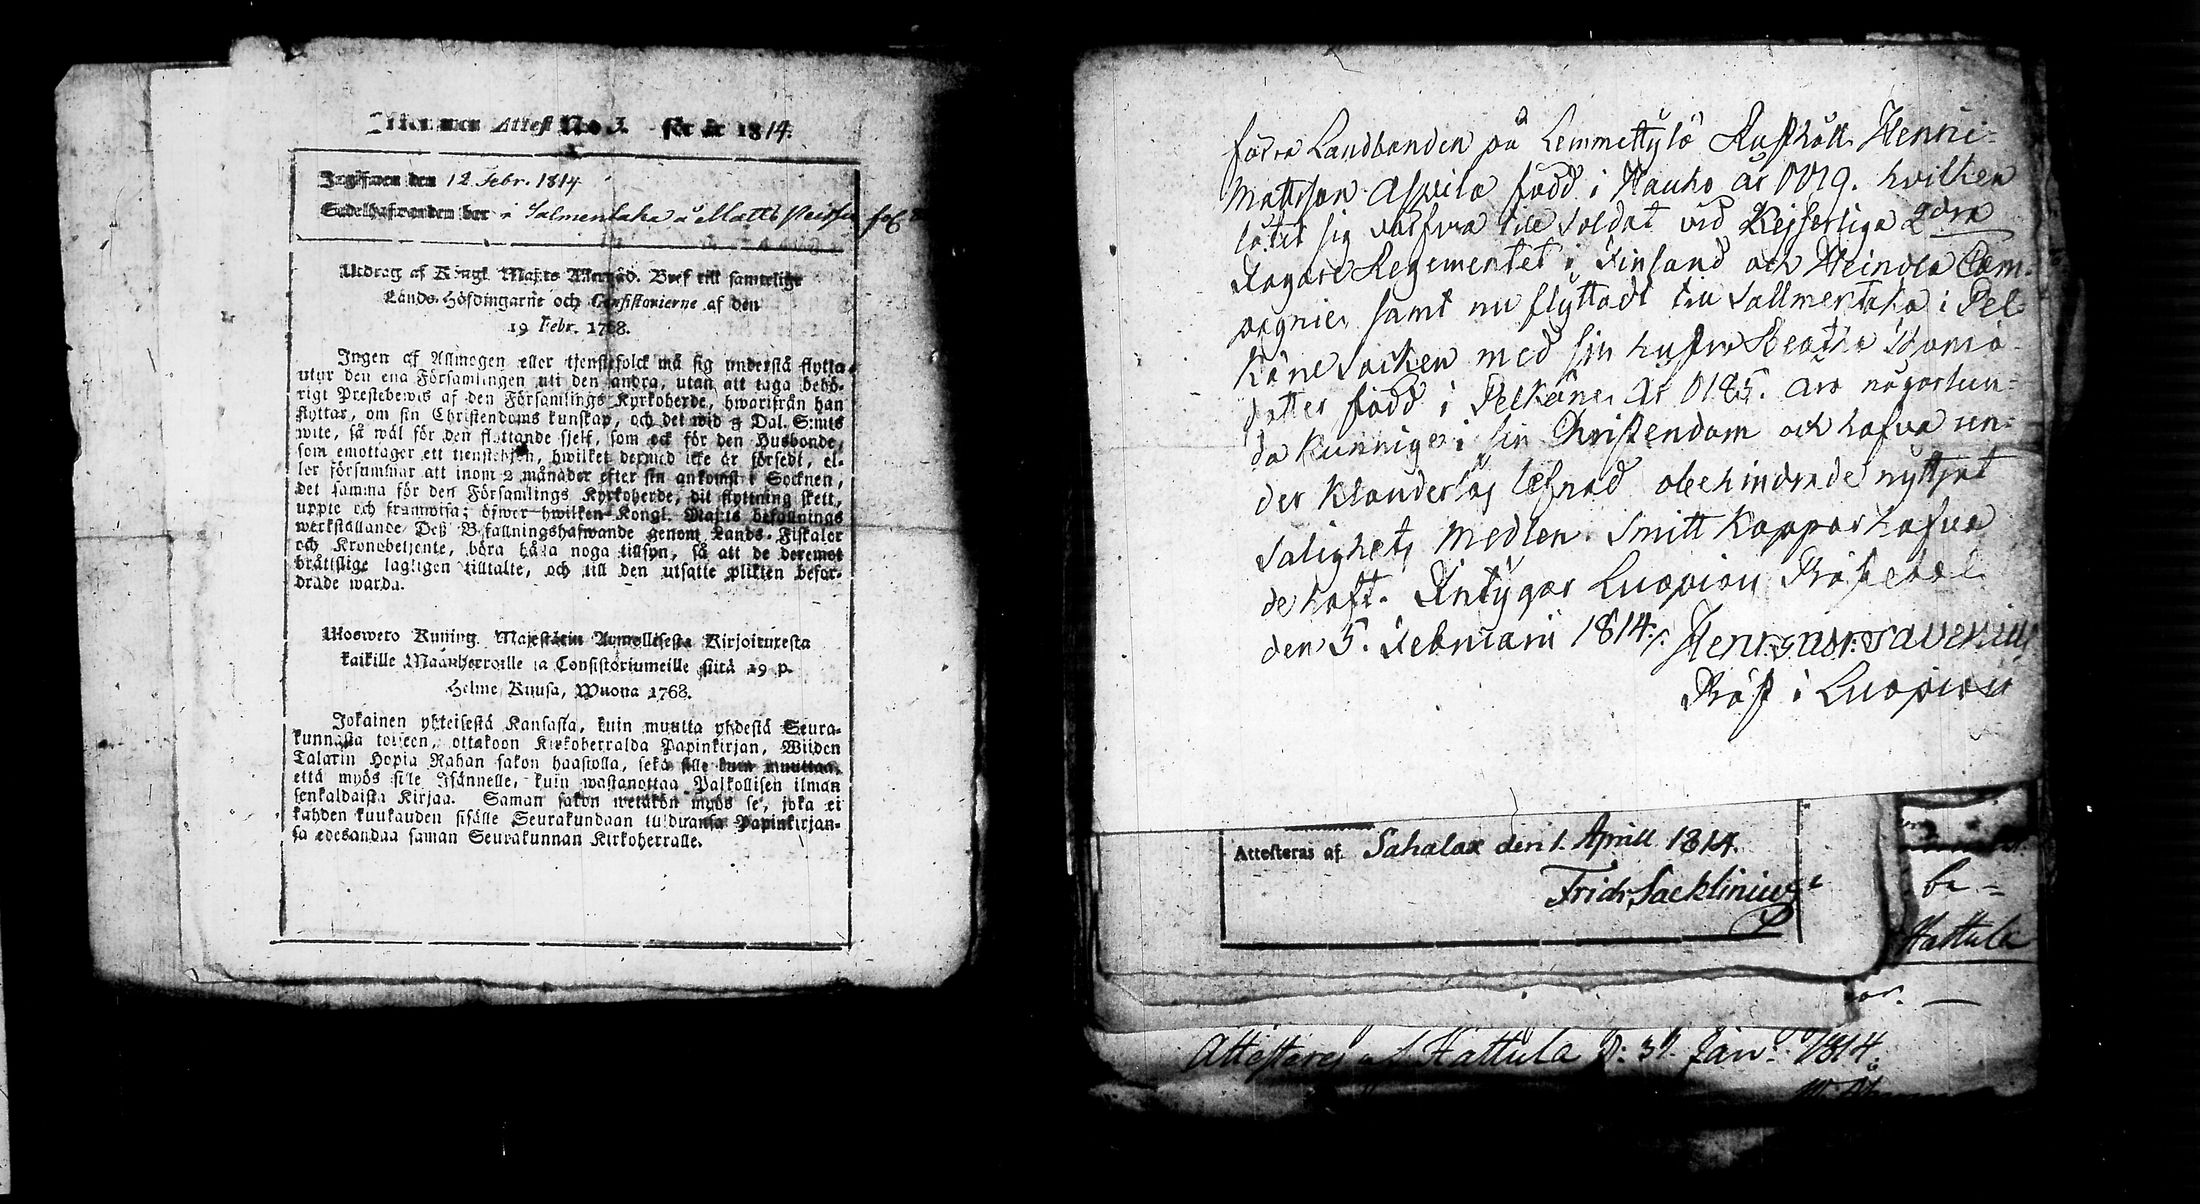 Attest No 3. för år 1814.
Ingifwen den 12 Febr. 1814
Sedelhafwanden bor i Salmentaka å Matti
Utdrag af Kongl. Maj:ts Allernåd. Bref till samtelige
Lands-Höfdingarne och Consistorierne af den
19 Febr. 1768.
Ingen af Allmogen eller tjenstefolck må sig understå flytta
utur den ena Församlingen uti den andra, utan att taga behö-
rigt Prestebewis af den Församlings Kyrkoherde, hwarifrån han
flyttar, om sin Christendoms kunskap, och det wid 5 Dal. S:mts
wite, så wäl för den flyttande sjelf, som ock för den Husbonde,
som emottager ett tienstehjon, hwilket dermed icke är försedt, el-
ler försummar att inom 2 månader efter sin ankomst i Socknen,
det samma för den Församlings Kyrkoherde, dit flyttning skett,
uppte och framwisa; öfwer hwilken Kongl. Maj:ts befallnings
werkställande Deß Befallningshafwande genom Lands-Fiskaler
och Kronobetjente, böra hålla noga tillsyn, så att de deremot
bråttslige lagligen tilltalte, och till den utsatte plikten befor-
drade warda.
Ulosweto Kuning. Majestätin Armollisesta Kirjoituresta
kaikille Maanherroille ja Consistoriumeille siitä 19 p.
Helme Kuusa, Wuona 1768.
Jokainen yhteisestä Kansasta, kuin muutta yhdestä Seura-
kunnasta toiseen, ottakoon Kirkoherralda Papinkirjan, Wiiden
Talarin Hopia Rahan sakon haastolla, sekä sille kuin muuttaa,
että myös sille Isännelle, kuin wastanottaa Palkollisen ilman
senkaldaista Kirjaa. Saman sakon wetäkön myös se, joka ei
kahden kuukauden sisälle Seurakundaan tulduansa Papinkirjan-
sa edesandaa saman Seurakunnan Kirkoherralle.
förra Landbonden på Lemmettylä Rusthåll Henric
Mattsson Aspila född i Hauho år 1779. hvilken
låtit sig värfva till Soldat vid Kejserliga 2dra
Jägare Regementet i Finland och Heinola Com-
pagnie, samt nu flyttadt till Sallmentaka i Pel-
käne Socken med sin hustru Beatha Thomæ
dotter född i Pelkäne år 1785. äro någorlun-
da kunnige i sin Christendom och hafva un-
der klanderlös lefnad obehindrade nyttjat
salighets medlen. Smitt Koppor hafva
de haft. Intygar Luopiois Prästebol
den 5. Februarii 1814.
Präst i Luopiois
Attesteras af Sahalax den 1. Aprill 1814.
Fridr. Sacklinius
be=
Hattula
Attesteras af Hattula d: 31. Janu: 1814.